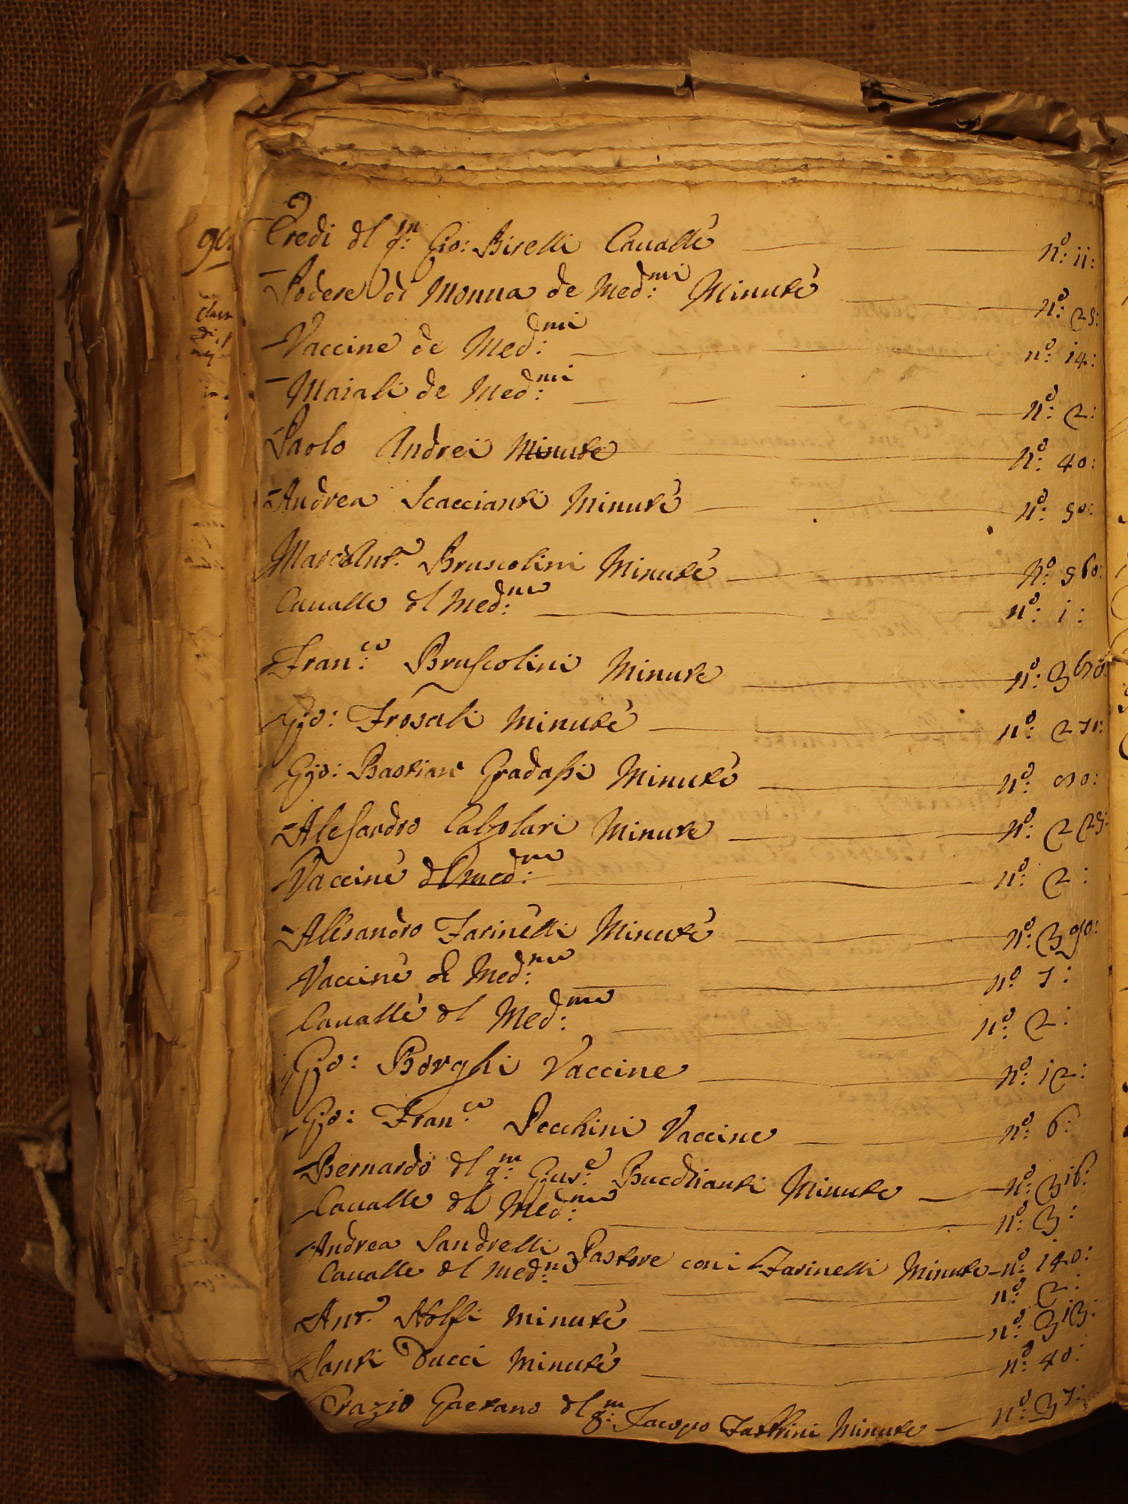 Eredi dl qm: Gio: Biselli Cavalle nº: 11:
Podere di Monna de Med:mi Minute nº: 25:
Vaccine de Med:mi nº: 14:
Maiali de Med:mi nº: 2:
Paolo Andrei Minute nº: 40:
Andrea Scaccianti Minute nº: 50:
MarcoAnt.º Bruscolini Minute nº: 560:
Cavalle dl Med:mo nº: 1:
Fran:co Bruscolini Minute nº: 360:
Gio: Frosali Minute nº:
Gio: Bastian Gradassi Minute nº:
Alesandro Calzolari Minute nº: 225:
Vaccine dl med:mo nº: 2:
Alesandro Farinelli Minute nº: 390:
Vaccine dl Med:mo nº 7:
Cavalle dl Med:mo nº: 2:
Gio: Borghi Vaccine nº: 12:
Gio: Fran:co Pecchini Vaccine nº: 6:
Bernardo dl qm: Gius:e Minute nº: 316:
Cavalle dl Med:mo nº: 3:
Andrea Sandrelli Pastore con i Farinelli Minute nº: 140:
Cavalle dl med:mo nº: 2:
Ant.º Nolfi minute nº: 313:
Santi Ducci minute nº: 40:
Orazio Gaetano dl qm: Jacopo Minute nº: 37: